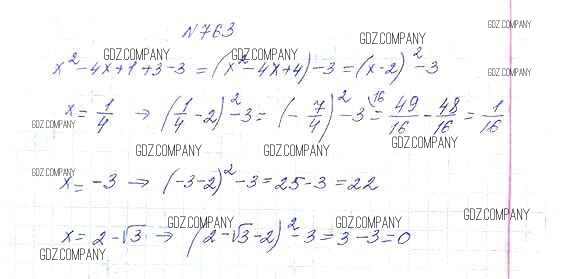 N763
GDZ.COMPANY
GDZ.COMPANY GDZ.COMPANY GDZ.COMPANY
x² - 4x + 1 + 3 - 3 = (x² - 4x + 4) - 3 = (x - 2)² - 3
GDZ.COMPANY
x = 1/4 → (1/4 - 2)² - 3 = (- 7/4)² - 3\16 = 49/16 - 48/16 = 1/16
GDZ.COMPANY
GDZ.COMPANY GDZ.COMPANY GDZ.COMPANY
GDZ.COMPANY
x = -3 → (-3-2)² - 3 = 25 - 3 = 22
GDZ.COMPANY GDZ.COMPANY GDZ.COMPANY
x = 2 - √3 → (2 - √3 - 2)² - 3 = 3 - 3 = 0
GDZ.COMPANY